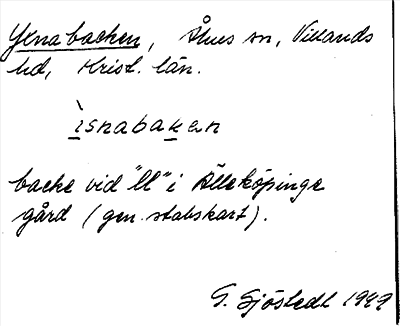 Ysnabacken, Åhus sn, Villands
hd, Krist. län.
ìsnabakan
backe vid "ll" i Älleköpinge
gård (gen. stabskart).
G. Sjöstedt 1949